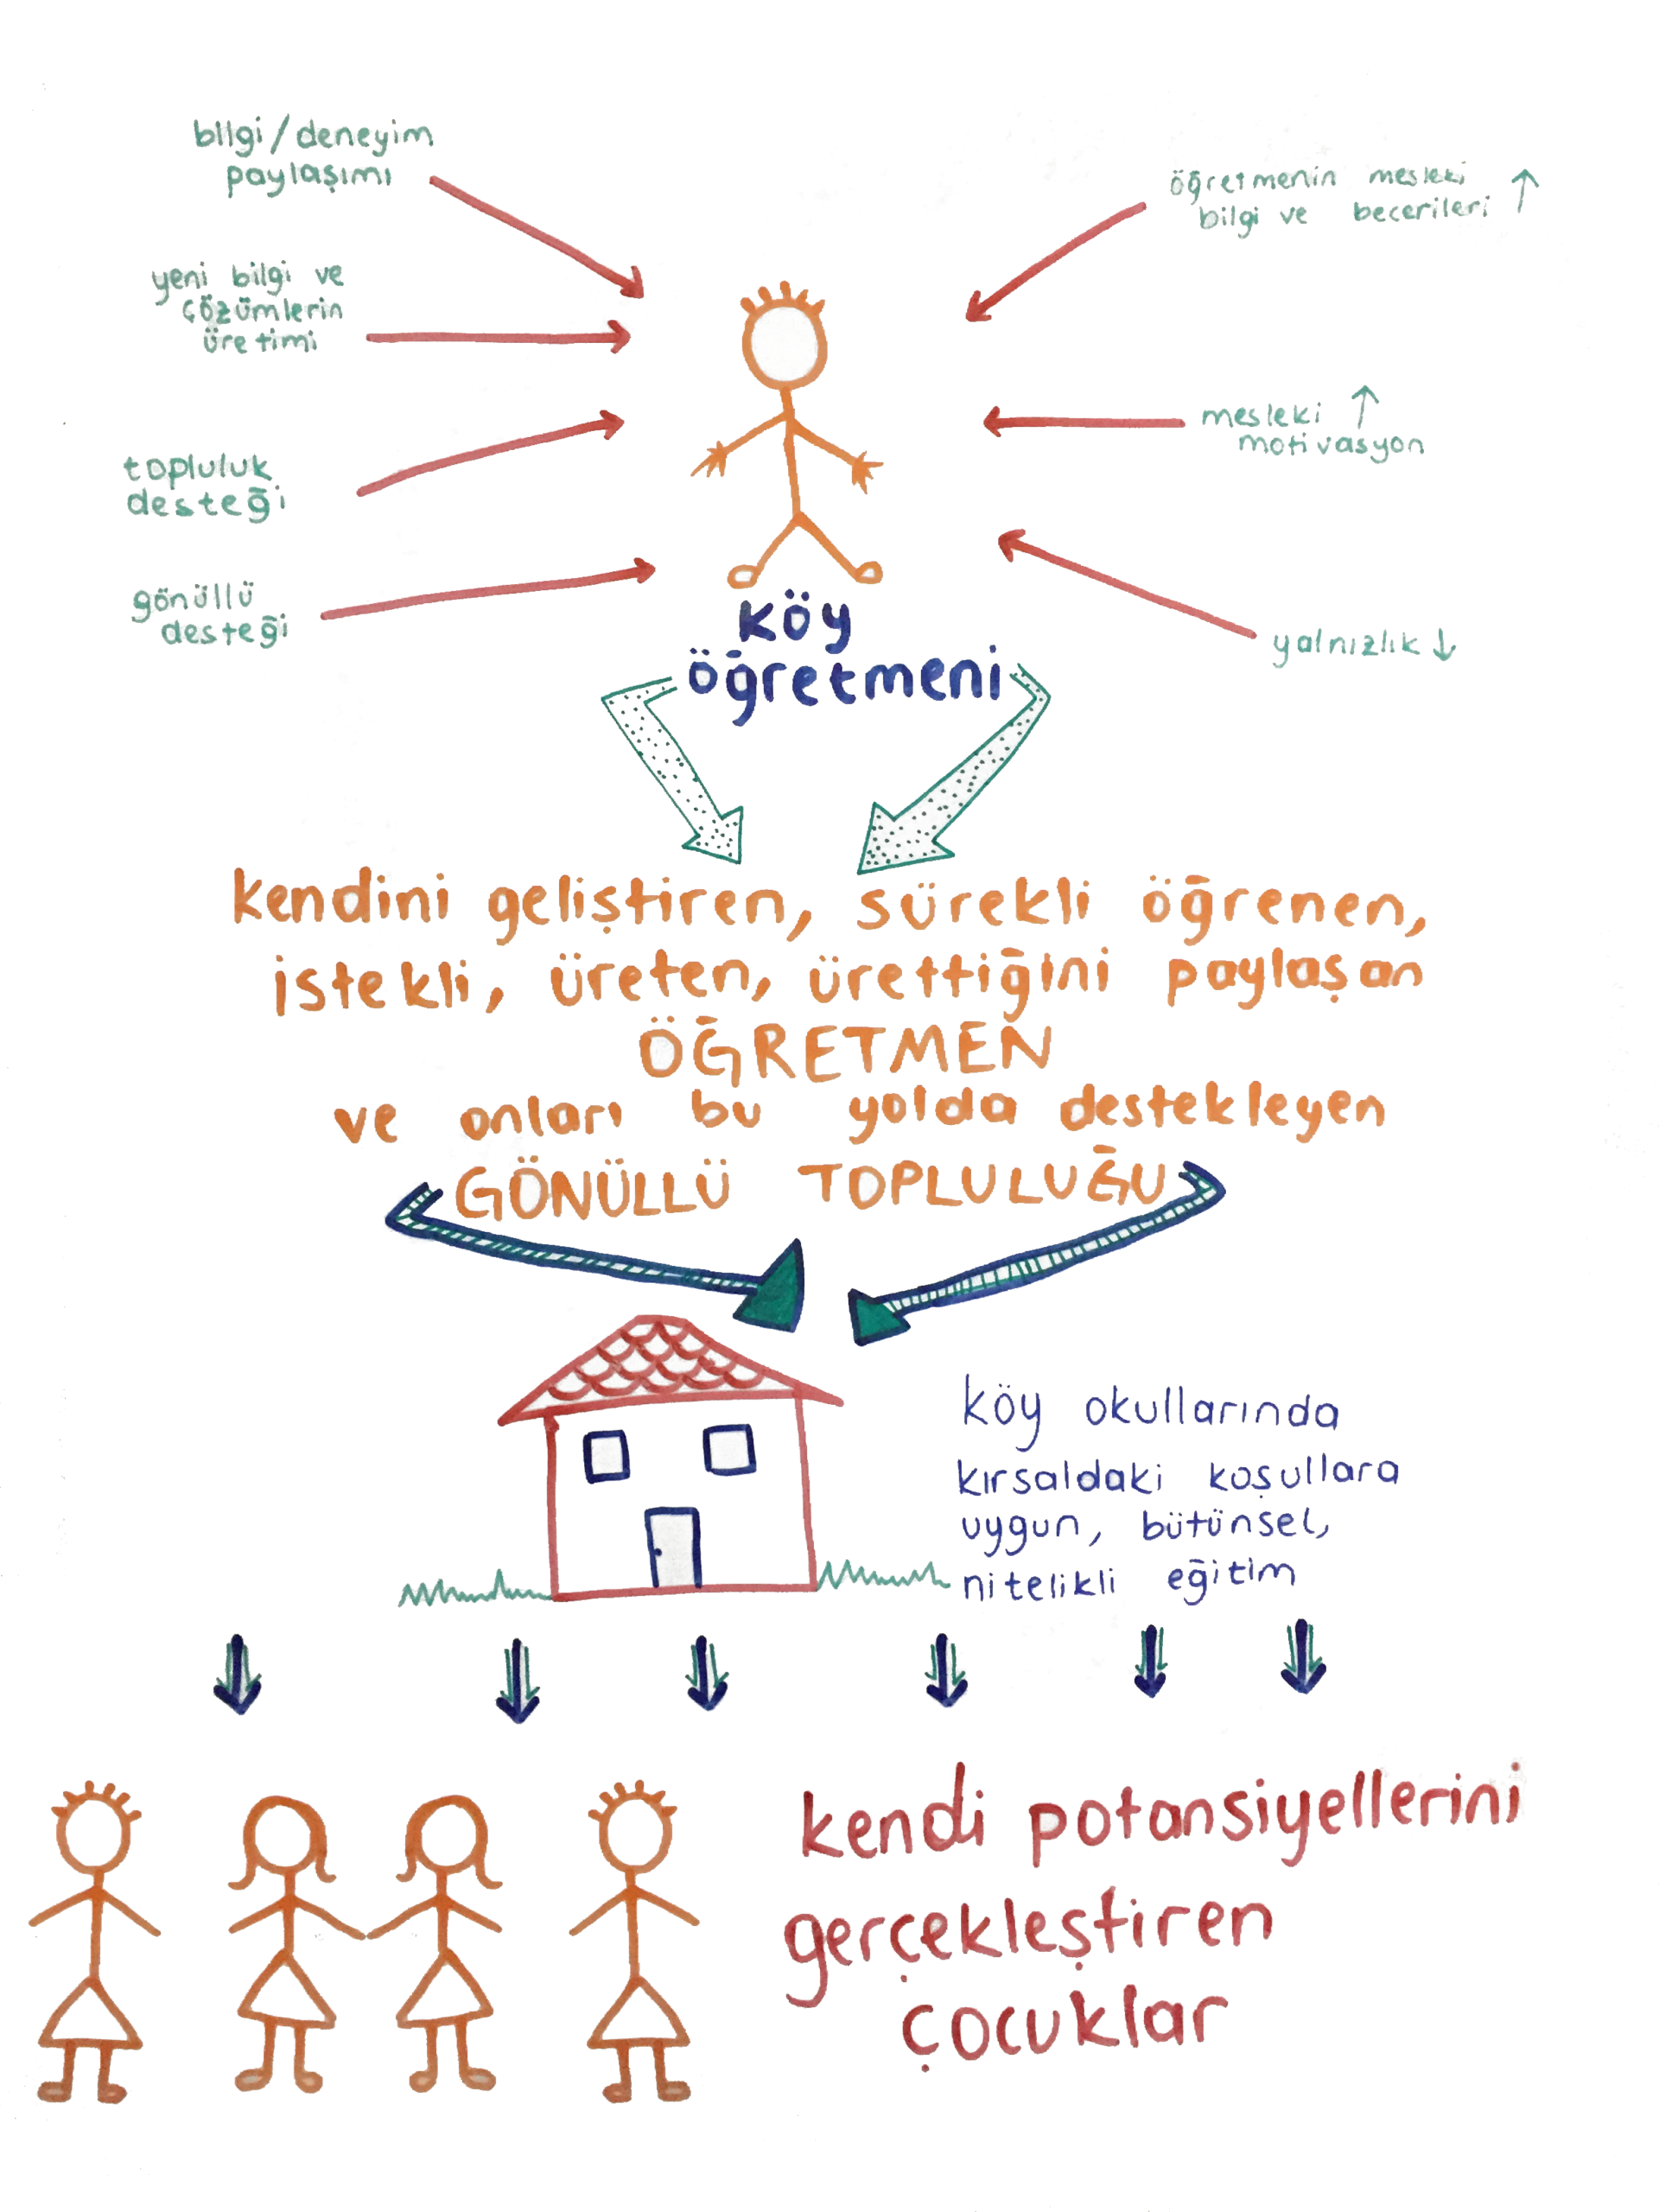 bilgi/deneyim
paylaşımı
yeni bilgi ve
çözümlerin
üretimi
topluluk
desteği
gönüllü
desteği
öğretmenin mesleki
bilgi ve becerileri ↑
mesleki ↑
motivasyon
yalnızlık ↓
köy
öğretmeni
kendini geliştiren, sürekli öğrenen,
istekli, üreten, ürettiğini paylaşan
ÖĞRETMEN
ve onları bu yolda destekleyen
GÖNÜLLÜ TOPLULUĞU
köy okullarında
kırsaldaki koşullara
uygun, bütünsel,
nitelikli eğitim
kendi potansiyellerini
gerçekleştiren
çocuklar